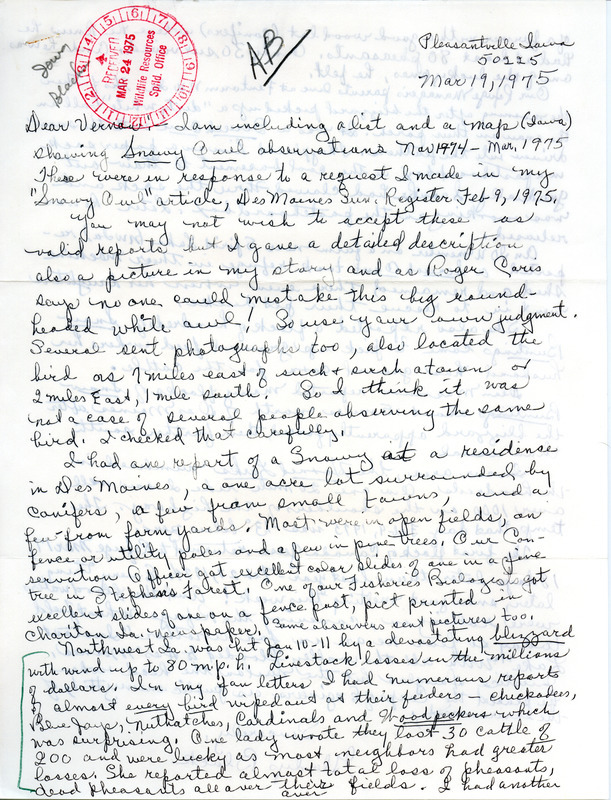 Pleasantville Iowa
50225
Mar 19, 1975
AB
Iowa
RECEIVED
MAR 24 1975
Wildlife Resources
Spfld. Office
Dear Vernon, - I am including a list and a map (Iowa)
showing Snowy Owl observations Nov 1974 - Mar. 1975
These were in response to a request I made in my
"Snowy Owl" article, Des Moines Sun. Register Feb 9, 1975.
You may not wish to accept these as
valid reports but I gave a detailed description
also a picture in my story and as Roger Caris
says no one could mistake this big round-
headed white owl! So use your own judgment.
Several sent photographs too, also located the
bird as 7 miles east of such & such a town or
2 miles East, 1 mile south. So I think it was
not a case of several people observing the same
bird. I checked that carefully.
I had one report of a Snowy at a residense
in Des Moines, a one acre lot surrounded by
conifers, a few from small towns, and a
few from farm yards. Most were in open fields, on
fence or utility poles and a few in pine trees. Our Con-
servation Officer got excellent color slides of one in a pine
tree in Stephens Forest. One of our Fisheries Biologists got
excellent slides of one on a fence post, pict printed in
Chariton Ia. newspaper. Some observers sent pictures too.
Northwest Ia. was hit Jan 10-11 by a devastating blizzard
with wind up to 80 m.p.h. Livestock losses in the millions
of dollars. In my fan letters I had numerous reports
of almost every bird wiped out at their feeders - chickadees,
Blue Jays, Nuthatches, Cardinals and Woodpeckers which
was surprising. One lady wrote they lost 30 cattle of
200 and were lucky as most neighbors had greater
losses. She reported almost total loss of pheasants,
dead pheasants all over their fields. I had another